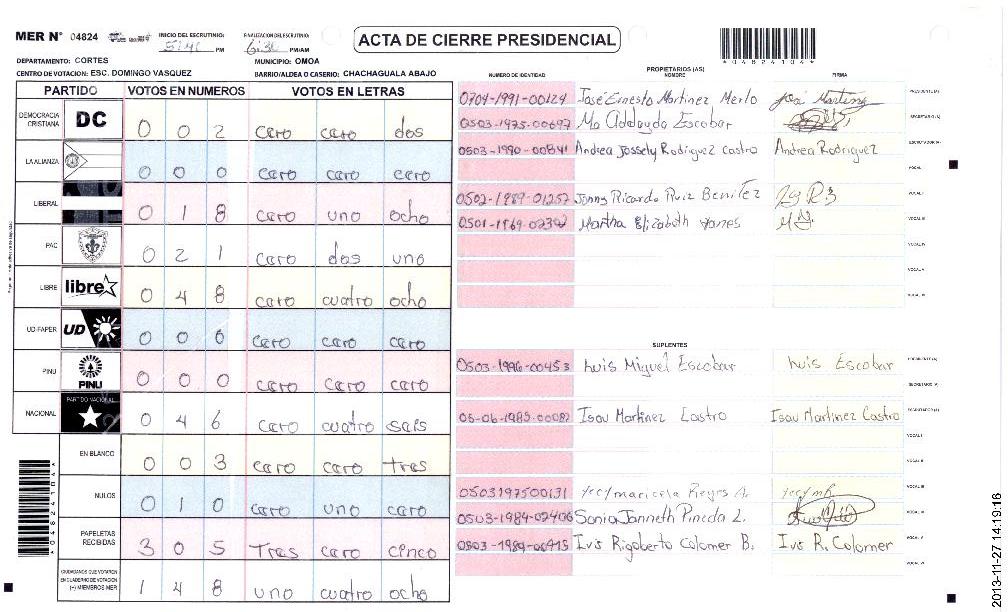 MER N° 04824 INICIO DEL ESCRUTINIO: PM FINALIZACION DEL ESCRUTINIO: PM/AM
ACTA DE CIERRE PRESIDENCIAL
*04824104*
DEPARTAMENTO: CORTES MUNICIPIO: OMOA
CENTRO DE VOTACION: ESC. DOMINGO VASQUEZ BARRIO/ALDEA O CASERIO: CHACHAGUALA ABAJO
PARTIDO VOTOS EN NUMEROS VOTOS EN LETRAS
DEMOCRACIA CRISTIANA DC 0 0 2 cero cero dos
LA ALIANZA 0 0 0 cero cero cero
LIBERAL 0 1 8 cero uno ocho
PAC 0 2 1 cero dos uno
LIBRE libre 0 4 8 cero cuatro ocho
UD-FAPER UD 0 0 0 cero cero cero
PINU PINU 0 0 0 cero cero cero
NACIONAL PARTIDO NACIONAL 0 4 6 cero cuatro seis
EN BLANCO 0 0 3 cero cero tres
NULOS 0 1 0 cero uno cero
PAPELETAS RECIBIDAS 3 0 5 Tres cero cinco
CIUDADANOS QUE VOTARON EN CUADERNO DE VOTACION (+) MIEMBROS MER 1 4 8 uno cuatro ocho
*04824104*
PROPIETARIOS (AS)
NUMERO DE IDENTIDAD NOMBRE FIRMA
0704-1991-00124 José Ernesto Martinez Merlo José Martinez PRESIDENTE (A)
0503-1975-00697 Ma Adelayda Escobar SECRETARIO (A)
0503-1990-00841 Andrea Jossely Rodriguez Castro Andrea Rodriguez ESCRUTADOR (A)
VOCAL I
0502-1989-01257 Jonny Ricardo Ruiz Benitez VOCAL II
0501-1969-02392 Martha Elizabeth Yanes VOCAL III
VOCAL IV
VOCAL V
VOCAL VI
SUPLENTES
0503-1996-00453 Luis Miguel Escobar Luis Escobar PRESIDENTE (A)
SECRETARIO (A)
05-06-1985-00082 Isau Martinez Castro Isau Martinez Castro ESCRUTADOR (A)
VOCAL I
VOCAL II
0503197500131 Yecy maricela Reyes A. VOCAL III
0503-1984-02406 Sonia Janneth Pineda L. VOCAL IV
0503-1989-00415 Ivis Rigoberto Colomer B. Ivis R. Colomer VOCAL V
VOCAL VI
2013-11-27 14:19:16